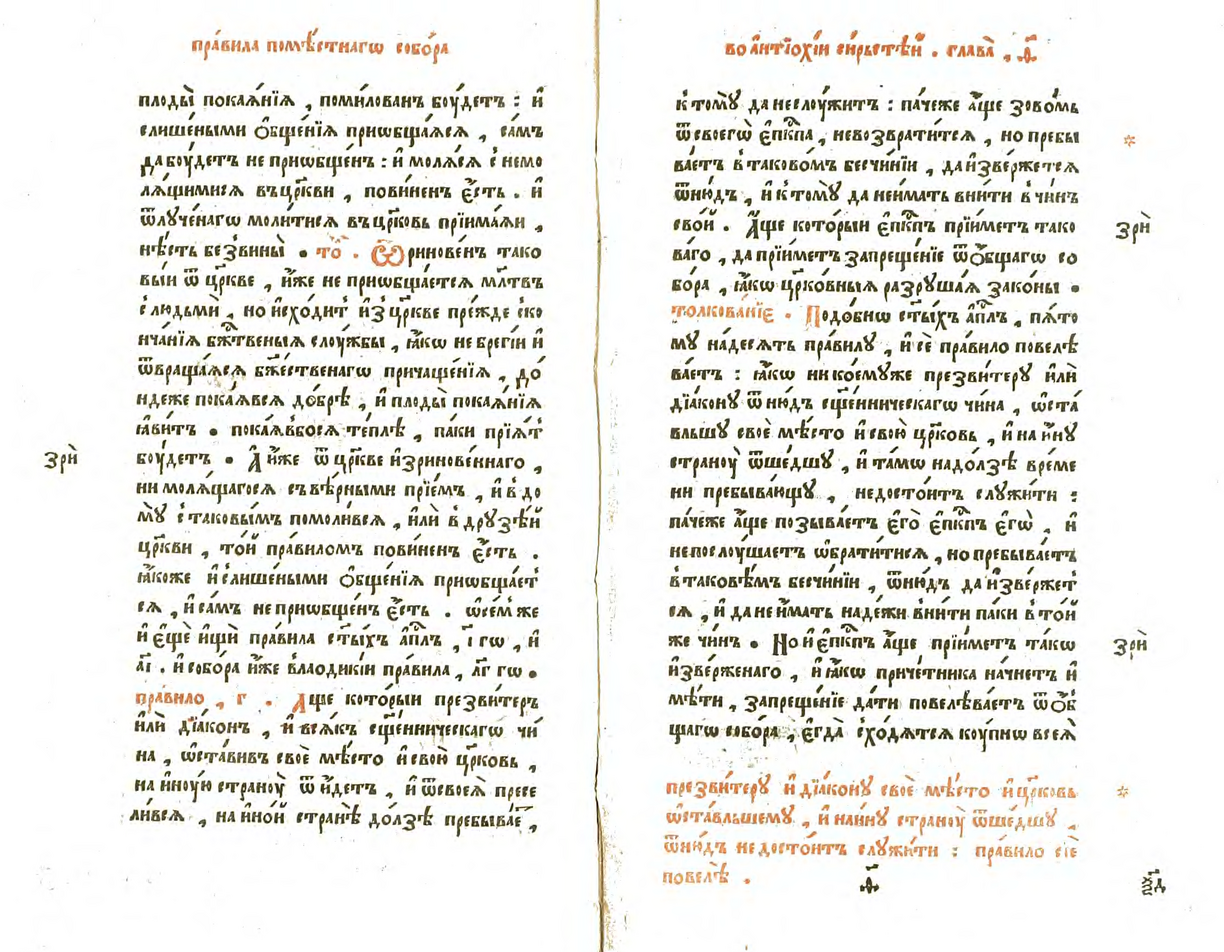 пра́вила помѣ́стнагѡ собо́ра
плоды̀ покаѧ́нїѧ , поми́лованъ бꙋ́детъ : и҆
слише́ными ѻ҆бще́нїѧ приѡбща́ѧсѧ , са́мъ
да бꙋ́детъ не приѡбще́нъ : и҆ молѧ́сѧ с немо
лѧ́щимисѧ въ цр҃кви , пови́ненъ є҆́сть . и҆
ѿлꙋче́нагѡ моли́тисѧ въ цр҃ковь прїима́ѧи ,
нѣ́сть без̾вины̀ . то́ . Ѿринове́нъ тако
вы́и ѿ цр҃кве , и҆́же не приѡбща́етсѧ мл҃твъ
с людьмѝ , но и҆схо́дит и҆з̾ цр҃кве пре́жде ско
нча́нїѧ бж҃твеныѧ слꙋ́жбы , ꙗ҆́кѡ не брегі́и и҆
ѿвраща́ѧсѧ бж҃е́ственагѡ причаще́нїѧ , до́
ндеже пока́ѧвсѧ до́брѣ , и҆ плоды̀ покаѧ́нїѧ
ꙗ҆ви́тъ . пока́ѧвбосѧ те́плѣ , па́ки прїѧ́т
бꙋ́детъ . А҆ и҆́же ѿ цр҃кве и҆зринове́ннаго ,
ни молѧ́щагосѧ съ вѣ́рными прїе́мъ , и҆ в до
мꙋ̀ с таковы́мъ помоли́всѧ , и҆лѝ в дрꙋзѣ́й
цр҃кви , то́й пра́виломъ пови́ненъ є҆́сть .
ꙗ҆́коже и҆ слише́ными ѻ҆бще́нїѧ приѡбща́ет
сѧ , и҆ са́мъ не приѡбще́нъ є҆́сть . ѡ се́м же
и҆ є҆щѐ и҆щѝ пра́вила ст҃ы́хъ а҆п҃лъ , і҃ гѡ , и҆
а҃і . и҆ собо́ра и҆́же в лаодикі́и пра́вила , л҃г гѡ .
пра́вило , г҃ . А҆́ще кото́рыи презви́теръ
и҆лѝ дїа́конъ , и҆ всѧ́къ сщ҃е́нническагѡ чи́
на , ѡ҆ста́вивъ своѐ мѣ́сто и҆ свою̀ цр҃ковь ,
на и҆нꙋ́ю странꙋ̀ ѿи́детъ , и҆ ѿ своеѧ̀ пресе
ли́всѧ , на и҆но́й странѣ̀ до́лзѣ пребыва́е ,
зрѝ
во а҆нтїохі́и си́рьстѣй . глава̀ , ѳ҃ .
к томꙋ̀ да не слꙋ́житъ : па́чеже а҆́ще зово́мъ
ѿ своегѡ̀ є҆пк҃па , не возврати́тсѧ , но пребы
ва́етъ в таково́мъ бесчи́нїи , да и҆зве́ржетсѧ
ѿню́дъ , и҆ к томꙋ̀ да не и҆́мать вни́ти в чи́нъ
сво́й . А҆́ще кото́рыи є҆пк҃пъ прїи́метъ тако
ва́го , да прїи́метъ запреще́нїе ѿ ѻ҆́бщагѡ со
бо́ра , ꙗ҆́кѡ цр҃ко́вныѧ разрꙋша́ѧ зако́ны .
толкова́нїе . Подо́бнѡ ст҃ы́хъ а҆п҃лъ , пѧ́то
мꙋ на́десѧть пра́вилꙋ , и҆ сѐ пра́вило повелѣ
ва́етъ : ꙗ҆́кѡ никоемꙋ́же презви́терꙋ и҆лѝ
дїа́конꙋ ѿню́дъ сщ҃е́нническагѡ чи́на , ѡ҆ста́
вльшꙋ своѐ мѣ́сто и҆ свою̀ цр҃ковь , и҆ на и҆́нꙋ
странꙋ̀ ѿше́дшꙋ , и҆ та́мѡ надо́лзѣ вре́ме
ни пребыва́ющꙋ , недосто́итъ слꙋжи́ти :
па́чеже а҆́ще позыва́етъ є҆го̀ є҆пк҃пъ є҆гѡ̀ , и҆
не послꙋ́шаетъ ѡ҆брати́тисѧ , но пребыва́етъ
в таковѣ́мъ бесчи́нїи , ѿню́дъ да и҆зве́ржет
сѧ , и҆ да не и҆́мать наде́жи вни́ти па́ки в то́й
же чи́нъ . Но и҆ є҆пк҃пъ а҆́ще прїи́метъ та́кѡ
и҆зве́рженаго , и҆ ꙗ҆́кѡ приче́тника начне́тъ и҆
мѣ́ти , запреще́нїе да́ти повелѣва́етъ ѿ ѻ҆́б
щагѡ собо́ра , є҆гда̀ схо́дѧтсѧ кꙋ́пнѡ всѧ̀
*
зрѝ
зрѝ
презви́терꙋ и҆ дїа́конꙋ своѐ мѣ́сто и҆ цр҃ковь
ѡ҆ста́вльшемꙋ , и҆ на и҆́нꙋ странꙋ̀ ѿше́дшꙋ ,
ѿню́дъ не досто́итъ слꙋжи́ти : пра́вило сїѐ
повелѣ̀ .
*
ѳ҃